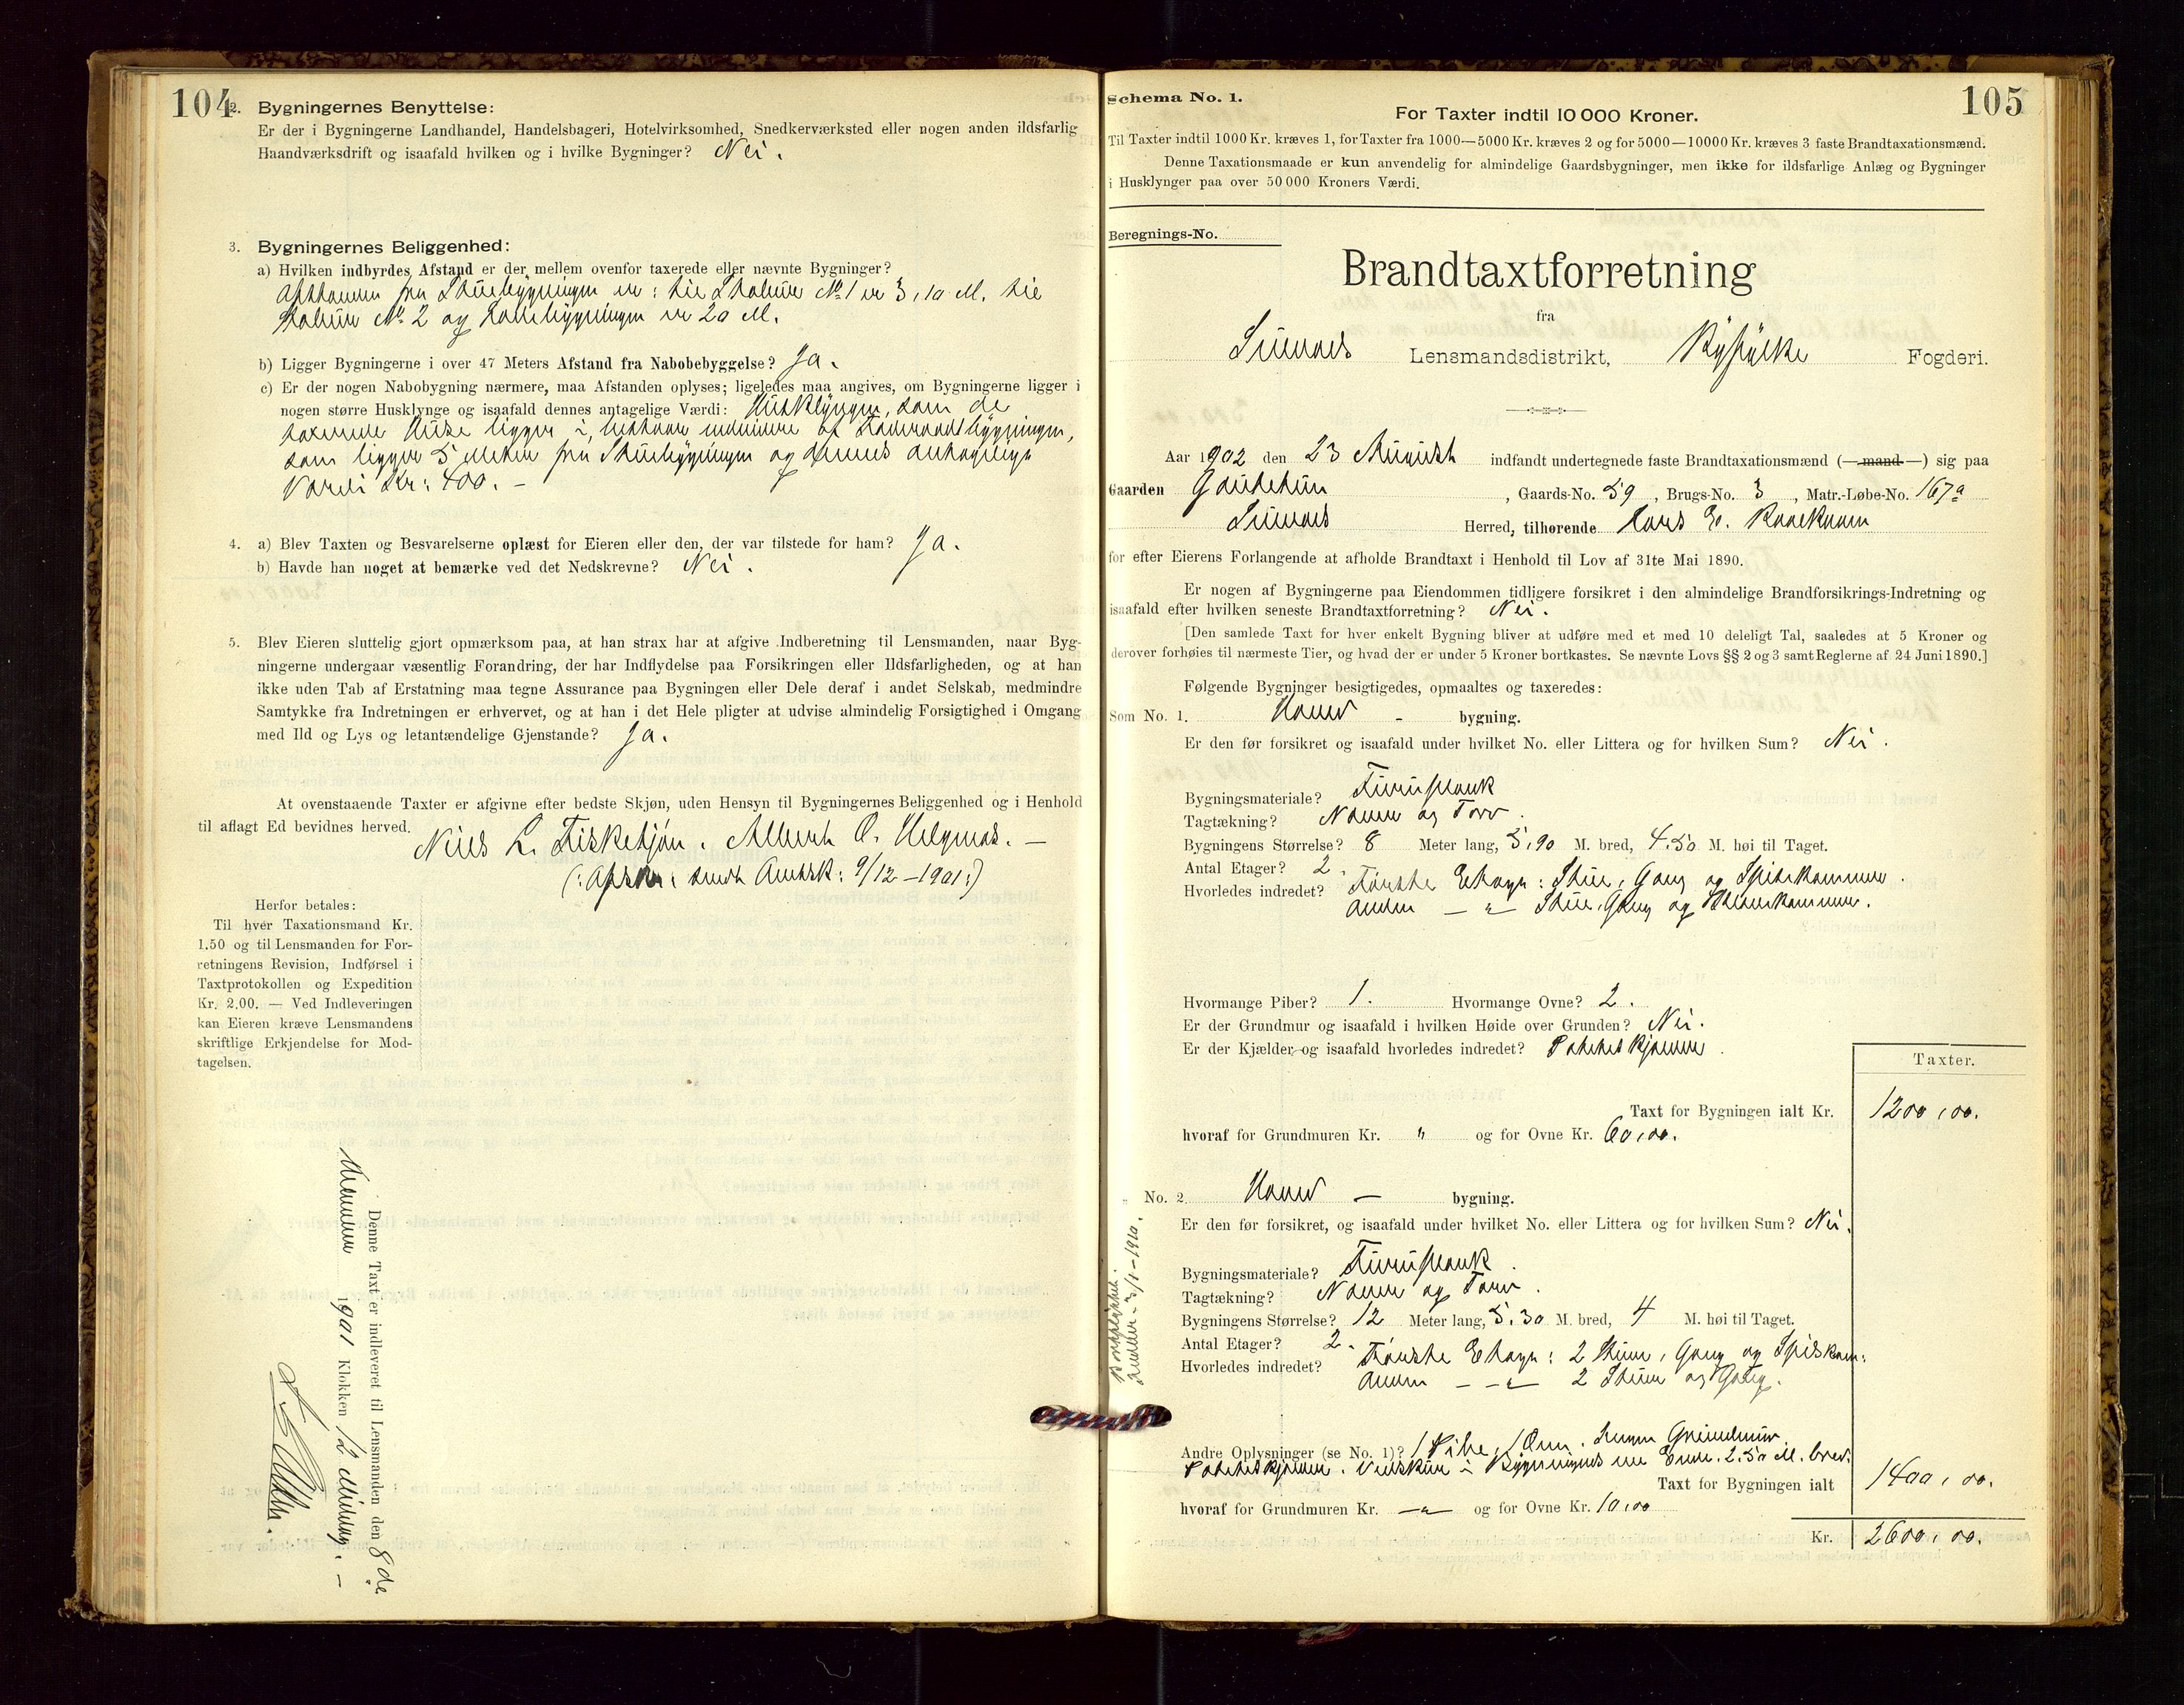 104
2. Bygningernes Benyttelse:
Er der i Bygningerne Landhandel, Handelsbageri, Hotelvirksomhed, Snedkerværksted eller nogen anden ildsfarlig
Haandværksdrift og isaafald hvilken og i hvilke Bygninger? Nei.
3. Bygningernes Beliggenhed:
a) Hvilken indbyrdes Afstand er der mellem ovenfor taxerede eller nævnte Bygninger?
Afstanden fra Stuebygningen er: til Stabur No 1 er 3,10 M. til
Stabur No 2 og Ladebygningen er 20 M.
b) Ligger Bygningerne i over 47 Meters Afstand fra Nabobebyggelse? Ja.
c) Er der nogen Nabobygning nærmere, maa Afstanden oplyses; ligeledes maa angives, om Bygningerne ligger i
nogen større Husklynge og isaafald dennes antagelige Værdi: Husklyngen, som de
taxerede Huse ligger i, bestaar
som ligger 5 Meter fra Stuebygningen og dennes antagelige
Værdi Kr: 400. -
4. a) Blev Taxten og Besvarelserne oplæst for Eieren eller den, der var tilstede for ham? Ja.
b) Havde han noget at bemærke ved det Nedskrevne? Nei.
5. Blev Eieren sluttelig gjort opmærksom paa, at han strax har at afgive Indberetning til Lensmanden, naar Byg-
ningerne undergaar væsentlig Forandring, der har Indflydelse paa Forsikringen eller Ildsfarligheden, og at han
ikke uden Tab af Erstatning maa tegne Assurance paa Bygningen eller Dele deraf i andet Selskab, medmindre
Samtykke fra Indretningen er erhvervet, og at han i det Hele pligter at udvise almindelig Forsigtighed i Omgang
med Ild og Lys og letantændelige Gjenstande? Ja.
At ovenstaaende Taxter er afgivne efter bedste Skjøn, uden Hensyn til Bygningernes Beliggenhed og i Henhold
til aflagt Ed bevidnes herved.
Niels L. Fisketjøn. Albert O. Helgenæs. -
(: Afskr: sendt Amtsk: 9/12 - 1901 :)
Herfor betales:
Til hver Taxationsmand Kr.
1.50 og til Lensmanden for For-
retningens Revision, Indførsel i
Taxtprotokollen og Expedition
Kr. 2.00. — Ved Indleveringen
kan Eieren kræve Lensmandens
skriftlige Erkjendelse for Mod-
tagelsen.
Denne Taxt er indleveret til Lensmanden den 8de
1901 Klokken 12 Middag. -
105
Schema No. 1.
For Taxter indtil 10 000 Kroner.
Til Taxter indtil 1000 Kr. kræves 1, for Taxter fra 1000—5000 Kr. kræves 2 og for 5000—10000 Kr. kræves 3 faste Brandtaxationsmænd.
Denne Taxationsmaade er kun anvendelig for almindelige Gaardsbygninger, men ikke for ildsfarlige Anlæg og Bygninger
i Husklynger paa over 50 000 Kroners Værdi.
Beregnings-No.
Brandtaxtforretning
fra
Suldals Lensmandsdistrikt, Ryfylke Fogderi.
Aar 1902 den 23 August indfandt undertegnede faste Brandtaxationsmænd (— mand —) sig paa
Gaarden Gautetun, Gaards-No. 59, Brugs-No. 3, Matr.-Løbe-No. 167a
Suldals Herred, tilhørende Lars E. Roaldkvam
for efter Eierens Forlangende at afholde Brandtaxt i Henhold til Lov af 31te Mai 1890.
Er nogen af Bygningerne paa Eiendommen tidligere forsikret i den almindelige Brandforsikrings-Indretning og
isaafald efter hvilken seneste Brandtaxtforretning? Nei.
[Den samlede Taxt for hver enkelt Bygning bliver at udføre med et med 10 deleligt Tal, saaledes at 5 Kroner og
derover forhøies til nærmeste Tier, og hvad der er under 5 Kroner bortkastes. Se nævnte Lovs §§ 2 og 3 samt Reglerne af 24 Juni 1890.]
Følgende Bygninger besigtigedes, opmaaltes og taxeredes:
Som No. 1. Vaanings - bygning.
Er den før forsikret og isaafald under hvilket No. eller Littera og for hvilken Sum? Nei.
Bygningsmateriale? Furuplank
Tagtækning? Næver og Torv.
Bygningens Størrelse? 8 Meter lang, 5,90 M. bred, 4.50 M. høi til Taget.
Antal Etager? 2.
Hvorledes indredet? Første Etage: Stue, Gang og Spisekammer.
Anden — " — Stue, Gang og Klædekammer.
Hvormange Piber? 1. Hvormange Ovne? 2.
Er der Grundmur og isaafald i hvilken Høide over Grunden? Nei.
Er der Kjælder og isaafald hvorledes indredet? Potetkjælder.
Taxter.
Taxt for Bygningen ialt Kr. 1200,00.
hvoraf for Grundmuren Kr. " og for Ovne Kr. 60,00.
" No. 2. — bygning.
Er den før forsikret, og isaafald under hvilket No. eller Littera og for hvilken Sum? Nei.
Bygningsmateriale? Furuplank.
Tagtækning? Næver og Torv.
Bygningens Størrelse? 12 Meter lang, 5.30 M. bred, 4 M. høi til Taget.
Antal Etager? 2.
Hvorledes indredet? Første Etage: 2 Stuer, Gang og Spiskam:
Anden — " — 2 Stuer og Gang.
Andre Oplysninger (se No. 1)? 1 Pibe, 1 Ovn. Ingen Grundmur.
Potetkjælder. Vedskur i Bygningens ene Ende. 2.50 M. bred.
Taxt for Bygningen ialt 1400,00.
hvoraf for Grundmuren Kr. — " — og for Ovne Kr. 10,00
Kr. 2600,00.
3/1 - 1910.